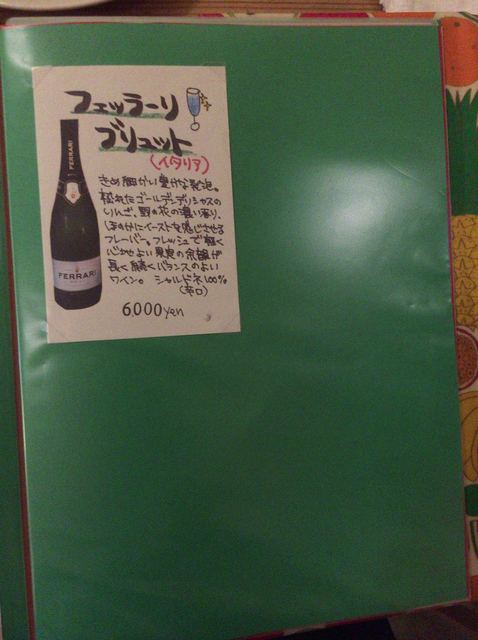 フェッラーリ
ブリュット
(イタリア)
きめ細かい豊かな発泡。
熟れたゴールデンデリシャスの
りんご、野の花の濃い香り、
ほのかにイーストを感じさせる
フレーバー。フレッシュで軽く
心地よい果実の余韻が
長く続くバランスのよい
ワイン。シャルドネ100%
(辛口)
6,000yen
FERRARI
FERRARI